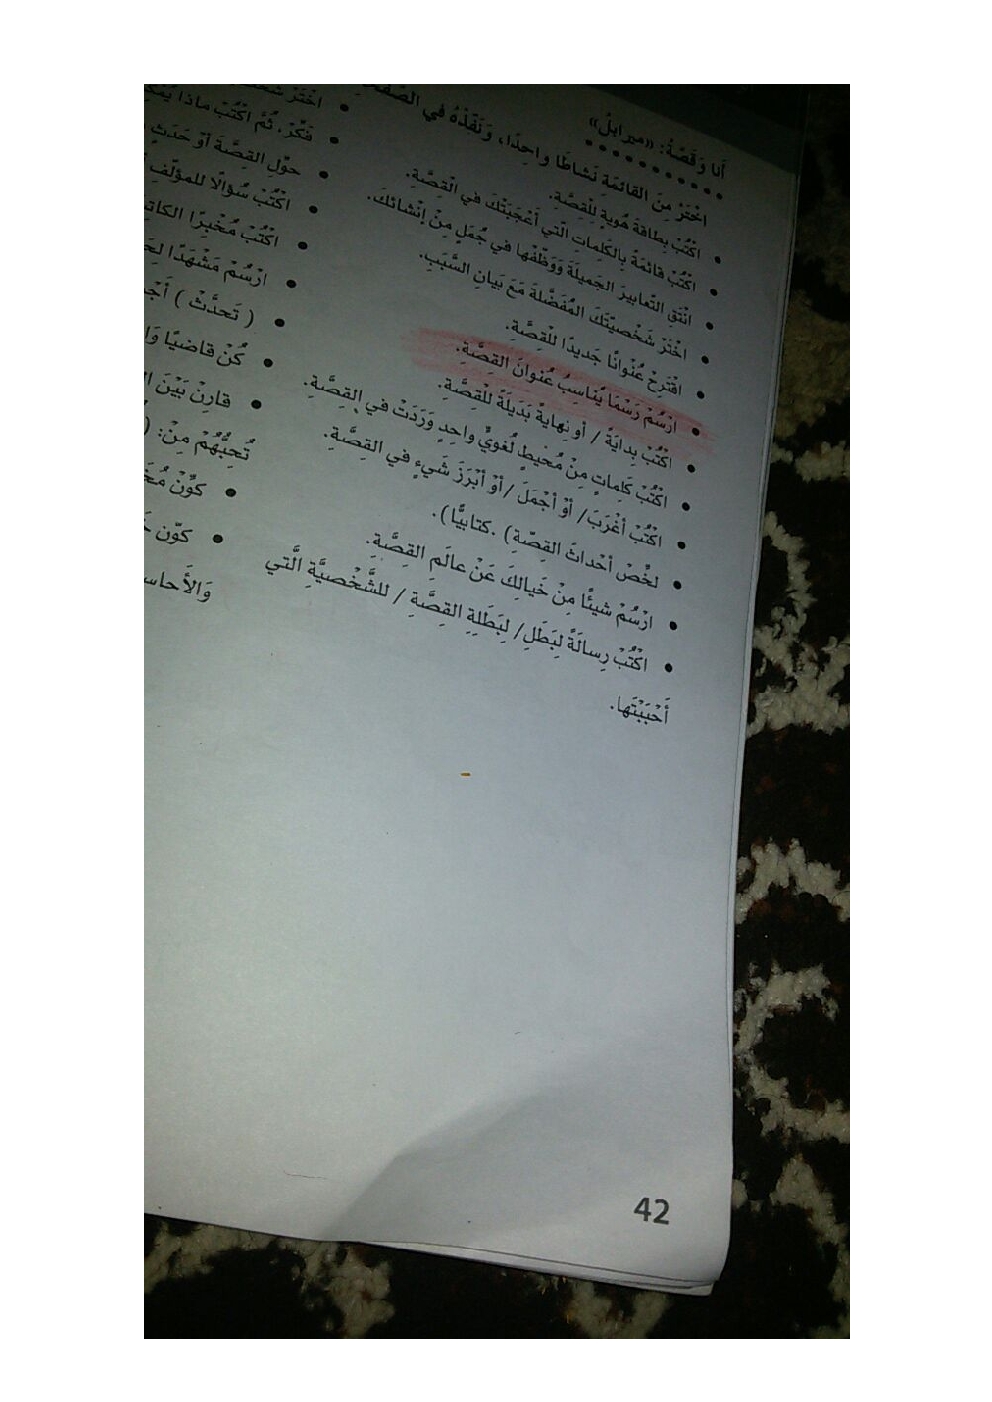 أَنا وَقِصَّةُ: «ميرابل»
اخْتَرْ مِنَ القائمَةِ نَشاطًا واحِدًا، وَنَفِّذْهُ في
اكْتُبْ بِطاقَةَ هُوِيةٍ لِلْقِصَّةِ.
اكْتُبْ قائمَةً بِالكَلِماتِ الَّتي أَعْجَبَتْكَ في القِصَّةِ.
انْتَقِ التَّعابيرَ الجَميلَةَ وَوَظِّفْها في جُمَلٍ مِنْ إنْشائكَ.
اخْتَرْ شَخْصيَّتَكَ المُفَضَّلَةَ مَعَ بَيانِ السَّبَبِ.
اقْتَرِحْ عُنْوانًا جَديدًا لِلْقِصَّةِ.
ارْسُمْ رَسْمًا يُناسِبُ عُنوانَ القِصَّةِ.
اكْتُبْ بِدايَةً / أو نِهايةً بَديلَةً لِلْقِصَّةِ.
اكْتُبْ كَلِماتٍ مِنْ مُحيطٍ لُغَويٍّ واحِدٍ وَرَدَتْ في القِصَّةِ.
اكْتُبْ أغْرَبَ/ أوْ أجْمَلَ /أوْ أبْرَزَ شَيءٍ في القِصَّةِ.
لخِّصْ أحْداثَ القِصّةِ) .كتابيًّا).
ارْسُمْ شيئًا مِنْ خَيالِكَ عَنْ عالَمِ القِصَّةِ.
اكْتُبْ رِسالَةً لِبَطَلِ/ لِبَطَلِةِ القِصَّةِ / للشَّخْصيَّةِ الَّتي
أَحْبَبْتَها.
اخْتَرْ
فَكِّرْ، ثُمَّ اكْتُبْ ماذا
حوِّلِ القِصَّةَ أوْ حَدَثَ
اكْتُبْ سُؤالًا للمؤلِّفِ
اكْتُبْ مُخْبِرًا
ارْسُمْ مَشْهَدًا
( تَحدَّثْ )
كُنْ قاضيًا
قارِنْ بَيْنَ
تُحِبُّهُمْ مِنْ: (
كَوِّنْ
كوّن
وَالأَحاس
42